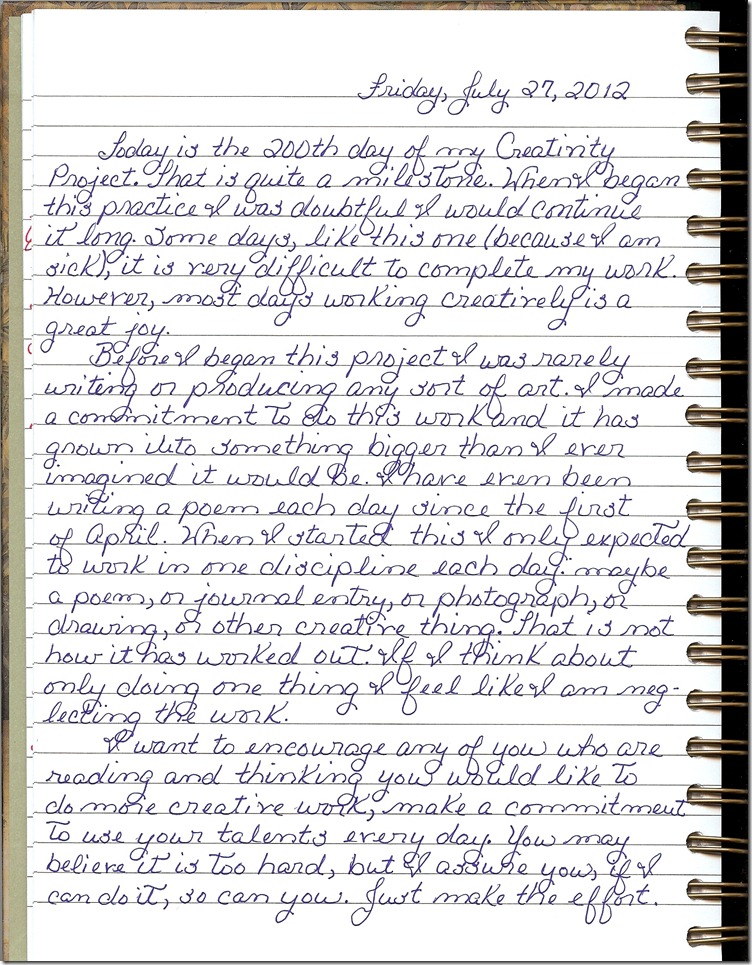 Friday, July 27, 2012
Today is the 200th day of my Creativity
Project. That is quite a milestone. When I began
this practice I was doubtful I would continue
it long. Some days, like this one (because I am
sick), it is very difficult to complete my work.
However, most days working creatively is a
great joy.
Before I began this project I was rarely
writing or producing any sort of art. I made
a commitment to do this work and it has
grown into something bigger than I ever
imagined it would be. I have even been
writing a poem each day since the first
of April. When I started this I only expected
to work in one discipline each day: maybe
a poem, or journal entry, or photograph, or
drawing, or other creative thing. That is not
how it has worked out. If I think about
only doing one thing I feel like I am neg-
lecting the work.
I want to encourage any of you who are
reading and thinking you would like to
do more creative work, make a commitment
to use your talents every day. You may
believe it is too hard, but I assure you, if I
can do it, so can you. Just make the effort.